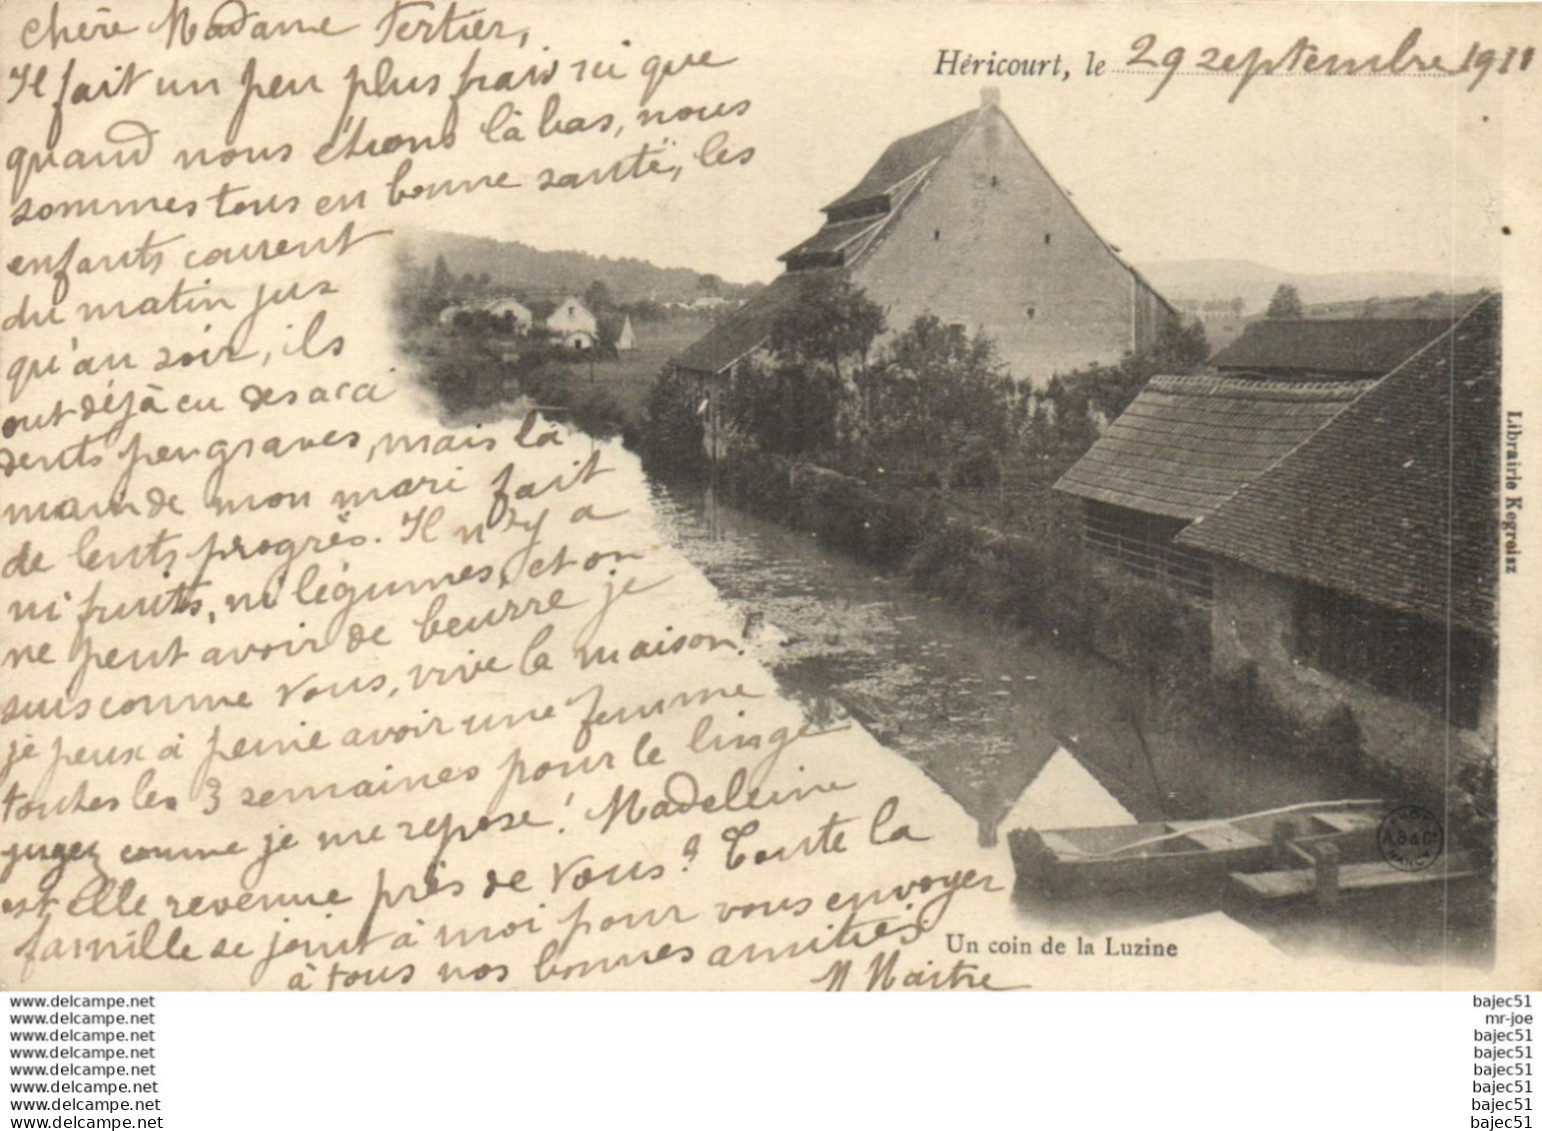 Chère Madame Tertier,
Il fait un peu plus frais ici que
quand nous étions là bas, nous
sommes tous en bonne santé, les
enfants courent
du matin jus
qu'au soir, ils
ont déjà eu des acci
dents peu graves, mais la
main de mon mari fait
de lents progrès. Il n'y a
ni fruits, ni légumes, et on
ne peut avoir de beurre je
suis comme vous, vive la maison!
je peux à peine avoir une femme
toutes les 3 semaines pour le linge
jugez comme je me repose! Madeleine
est elle revenue près de vous? Toute la
famille se joint à moi pour vous envoyer
à tous nos bonnes amitiés
M Maitre
Héricourt, le 29 septembre 1911
Librairie Kegreisz
Un coin de la Luzine
www.delcampe.net
www.delcampe.net
www.delcampe.net
www.delcampe.net
www.delcampe.net
www.delcampe.net
www.delcampe.net
www.delcampe.net
bajec51
mr-joe
bajec51
bajec51
bajec51
bajec51
bajec51
bajec51